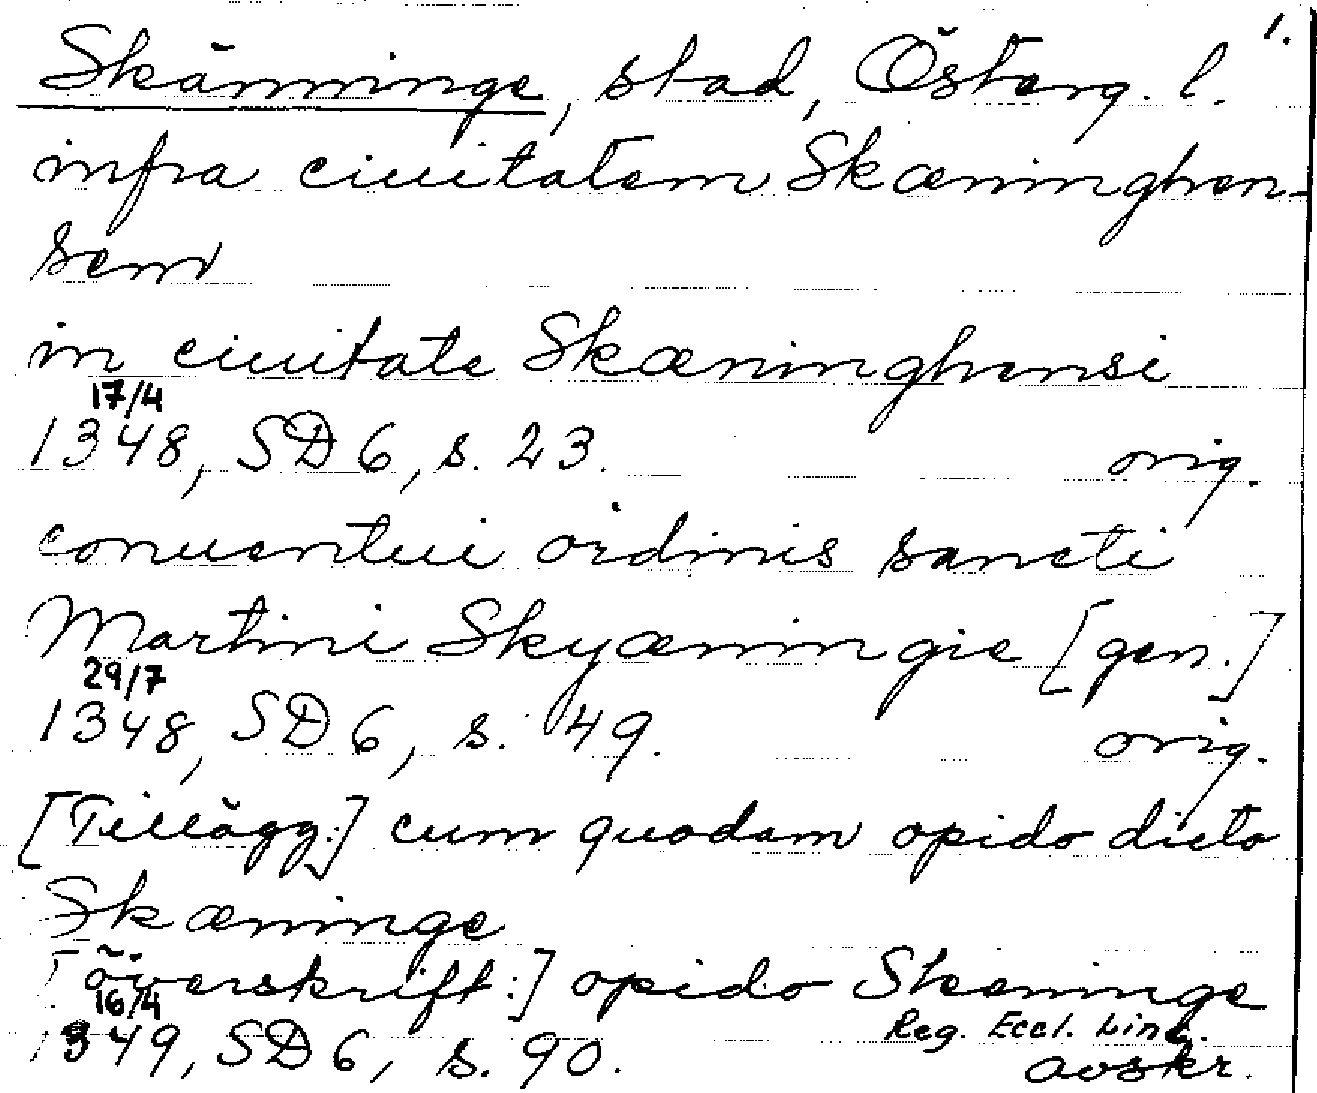 1.
Skänninge, stad, Österg. l.
infra ciuitatem Skæninghen-
sem
in ciuitate Skæninghensi
17/4
1348, SD 6, s. 23. orig.
conuentui ordinis sancti
Martini Skyæningie [gen.]
29/7
1348, SD 6, s. 49. orig.
[Tillägg:] cum quodam opido dicto
Skæninge
[överskrift:] opido Skeninge
16/4 Reg. Eccl. Linc.
1349, SD 6, s. 90. avskr.